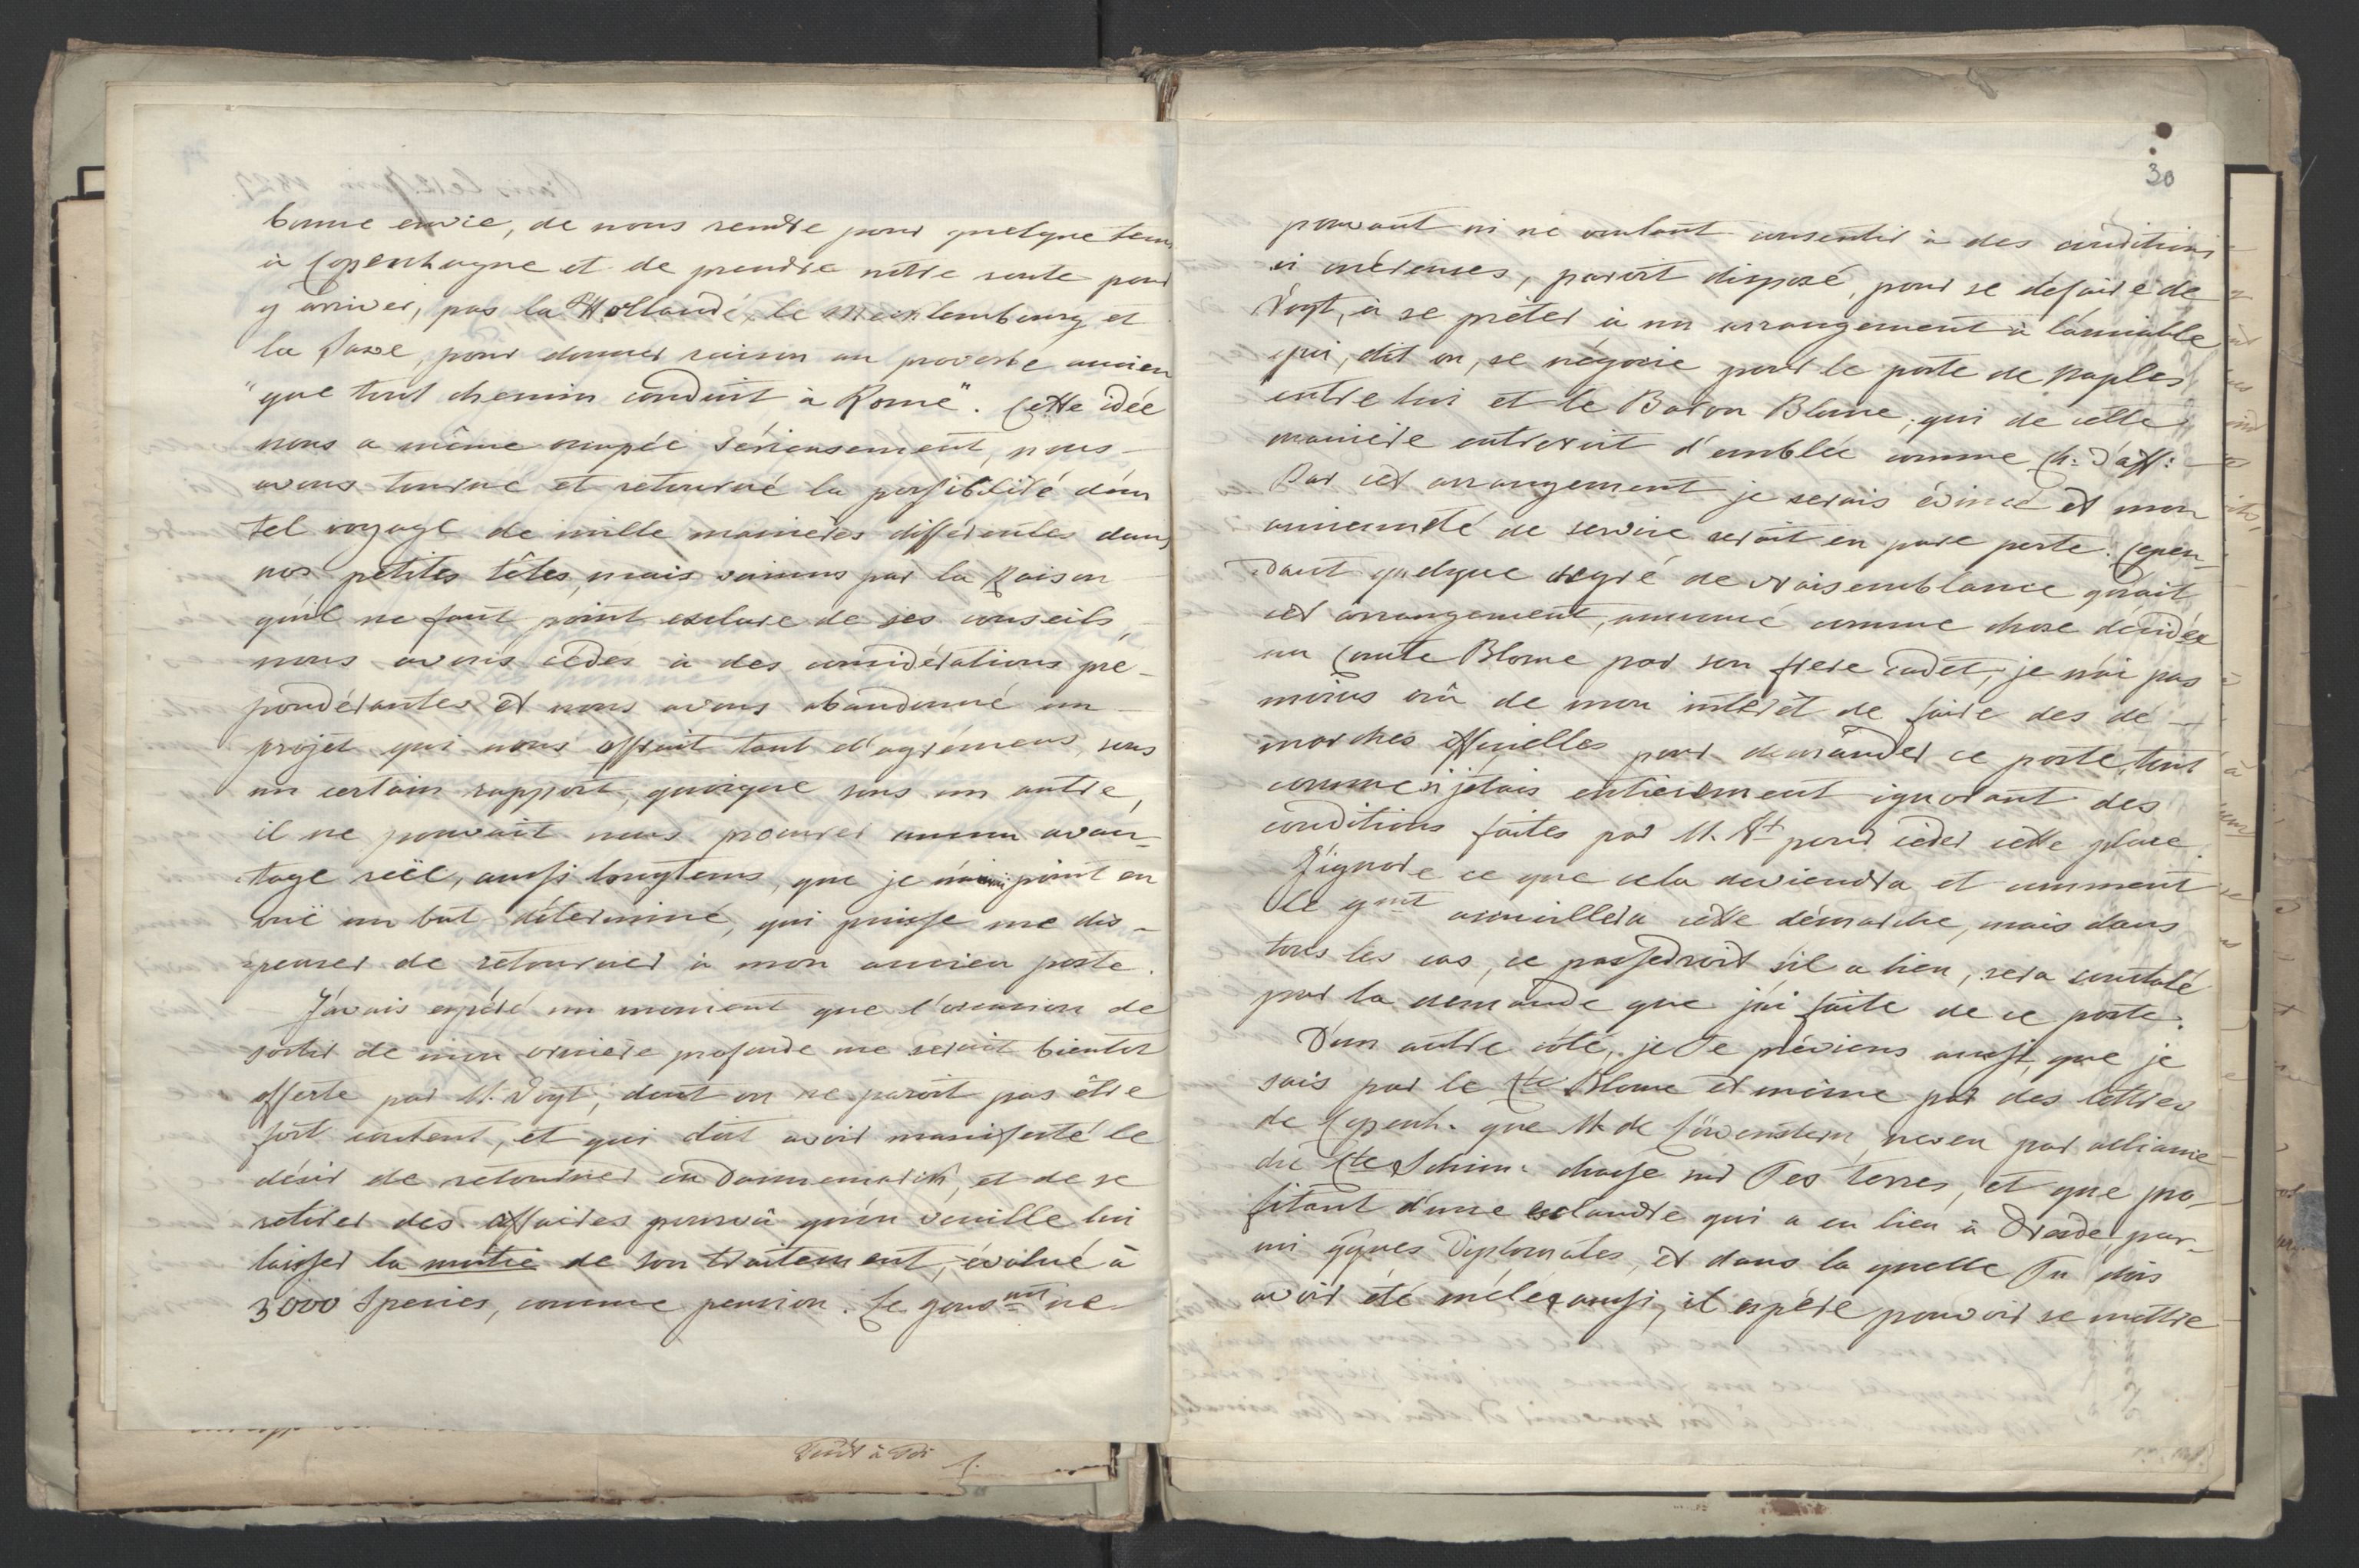 bonne envie, de nous rendre pour quelque tems
à Copenhague et de prendre nôtre route pour
y arriver, par la Hollande, le Mecklembourg et
la Saxe, pour donner raison au proverbe ancien
"que tout chemin conduit à Rome". Cette idée
nous a même occupée sérieusement, nous
avons tourné et retourné la possibilité d'un
tel voyage de mille manieres différentes dans
nos petites têtes, mais vaincus par la Raison
qu'il ne faut point exclure de ses conseils,
nous avons cédés à des considérations pré-
pondérantes et nous avons abandonné un
projet qui nous offrait tant d'agrémens sous
un certain rapport, quoique sous un autre,
il ne pouvait nous procurer aucun avan-
tage réel, aussi longtems, que je n'ai point en
vuë un but déterminé, qui puisse me dis-
penser de retourner à mon ancien poste.
J'avais espéré un moment que l'occasion de
sortir de mon orniere profonde me serait bientot
offerte par M. Vogt, dont on ne paroit pas être
fort content, et qui doit avoir manifesté le
désir de retourner en Dannemarck, et de se
retirer des affaires pourvû qu'on veuille lui
laisser la moitié de son traitement, évalué à
3000 Species, comme pension. Le gouvnt ne
30
pouvant ni ne voulant consentir à des conditions
si onéreuses, paroit disposé, pour se défaire de
Vogt, à se prêter à un arrangement à l'amiable
qui, dit on, se négocie pour le poste de Naples
entre lui et le Baron Blome, qui de cette
maniere entreroit d'emblée comme Ch. d'aff:
Par cet arrangement je serais évincé et mon
ancienneté de service seroit en pure perte. Cepen-
dant quelque degré de vraisemblance qu'ait
cet arrangement, annoncé comme chose décidée
au Comte Blome par son frere cadet, je n'ai pas
moins crû de mon intérêt de faire des dé-
marches officielles pour demander ce poste, tout
comme si j'etais entierement ignorant des
conditions faites par M. Vt pour céder cette place.
J'ignore ce que cela deviendra et comment
le gmt accueillera cette démarche, mais dans
tous les cas, ce passedroit s'il a lieu, sera constaté
par la demande que j'ai faite de ce poste.
D'un autre côté, je Te préviens aussi, que je
sais par le Cte Blome et même par des lettres
de Copenh. que M. de Löwenstern, neveu par alliance
du Cte Schim: chasse sur Tes terres, et que pro-
fitant d'une esclandre qui a eu lieu à Dresde par-
mi qques Diplomates, et dans la quelle Tu dois
avoir été mêlé aussi, il espére pouvoir se mettre
Tout à Toi